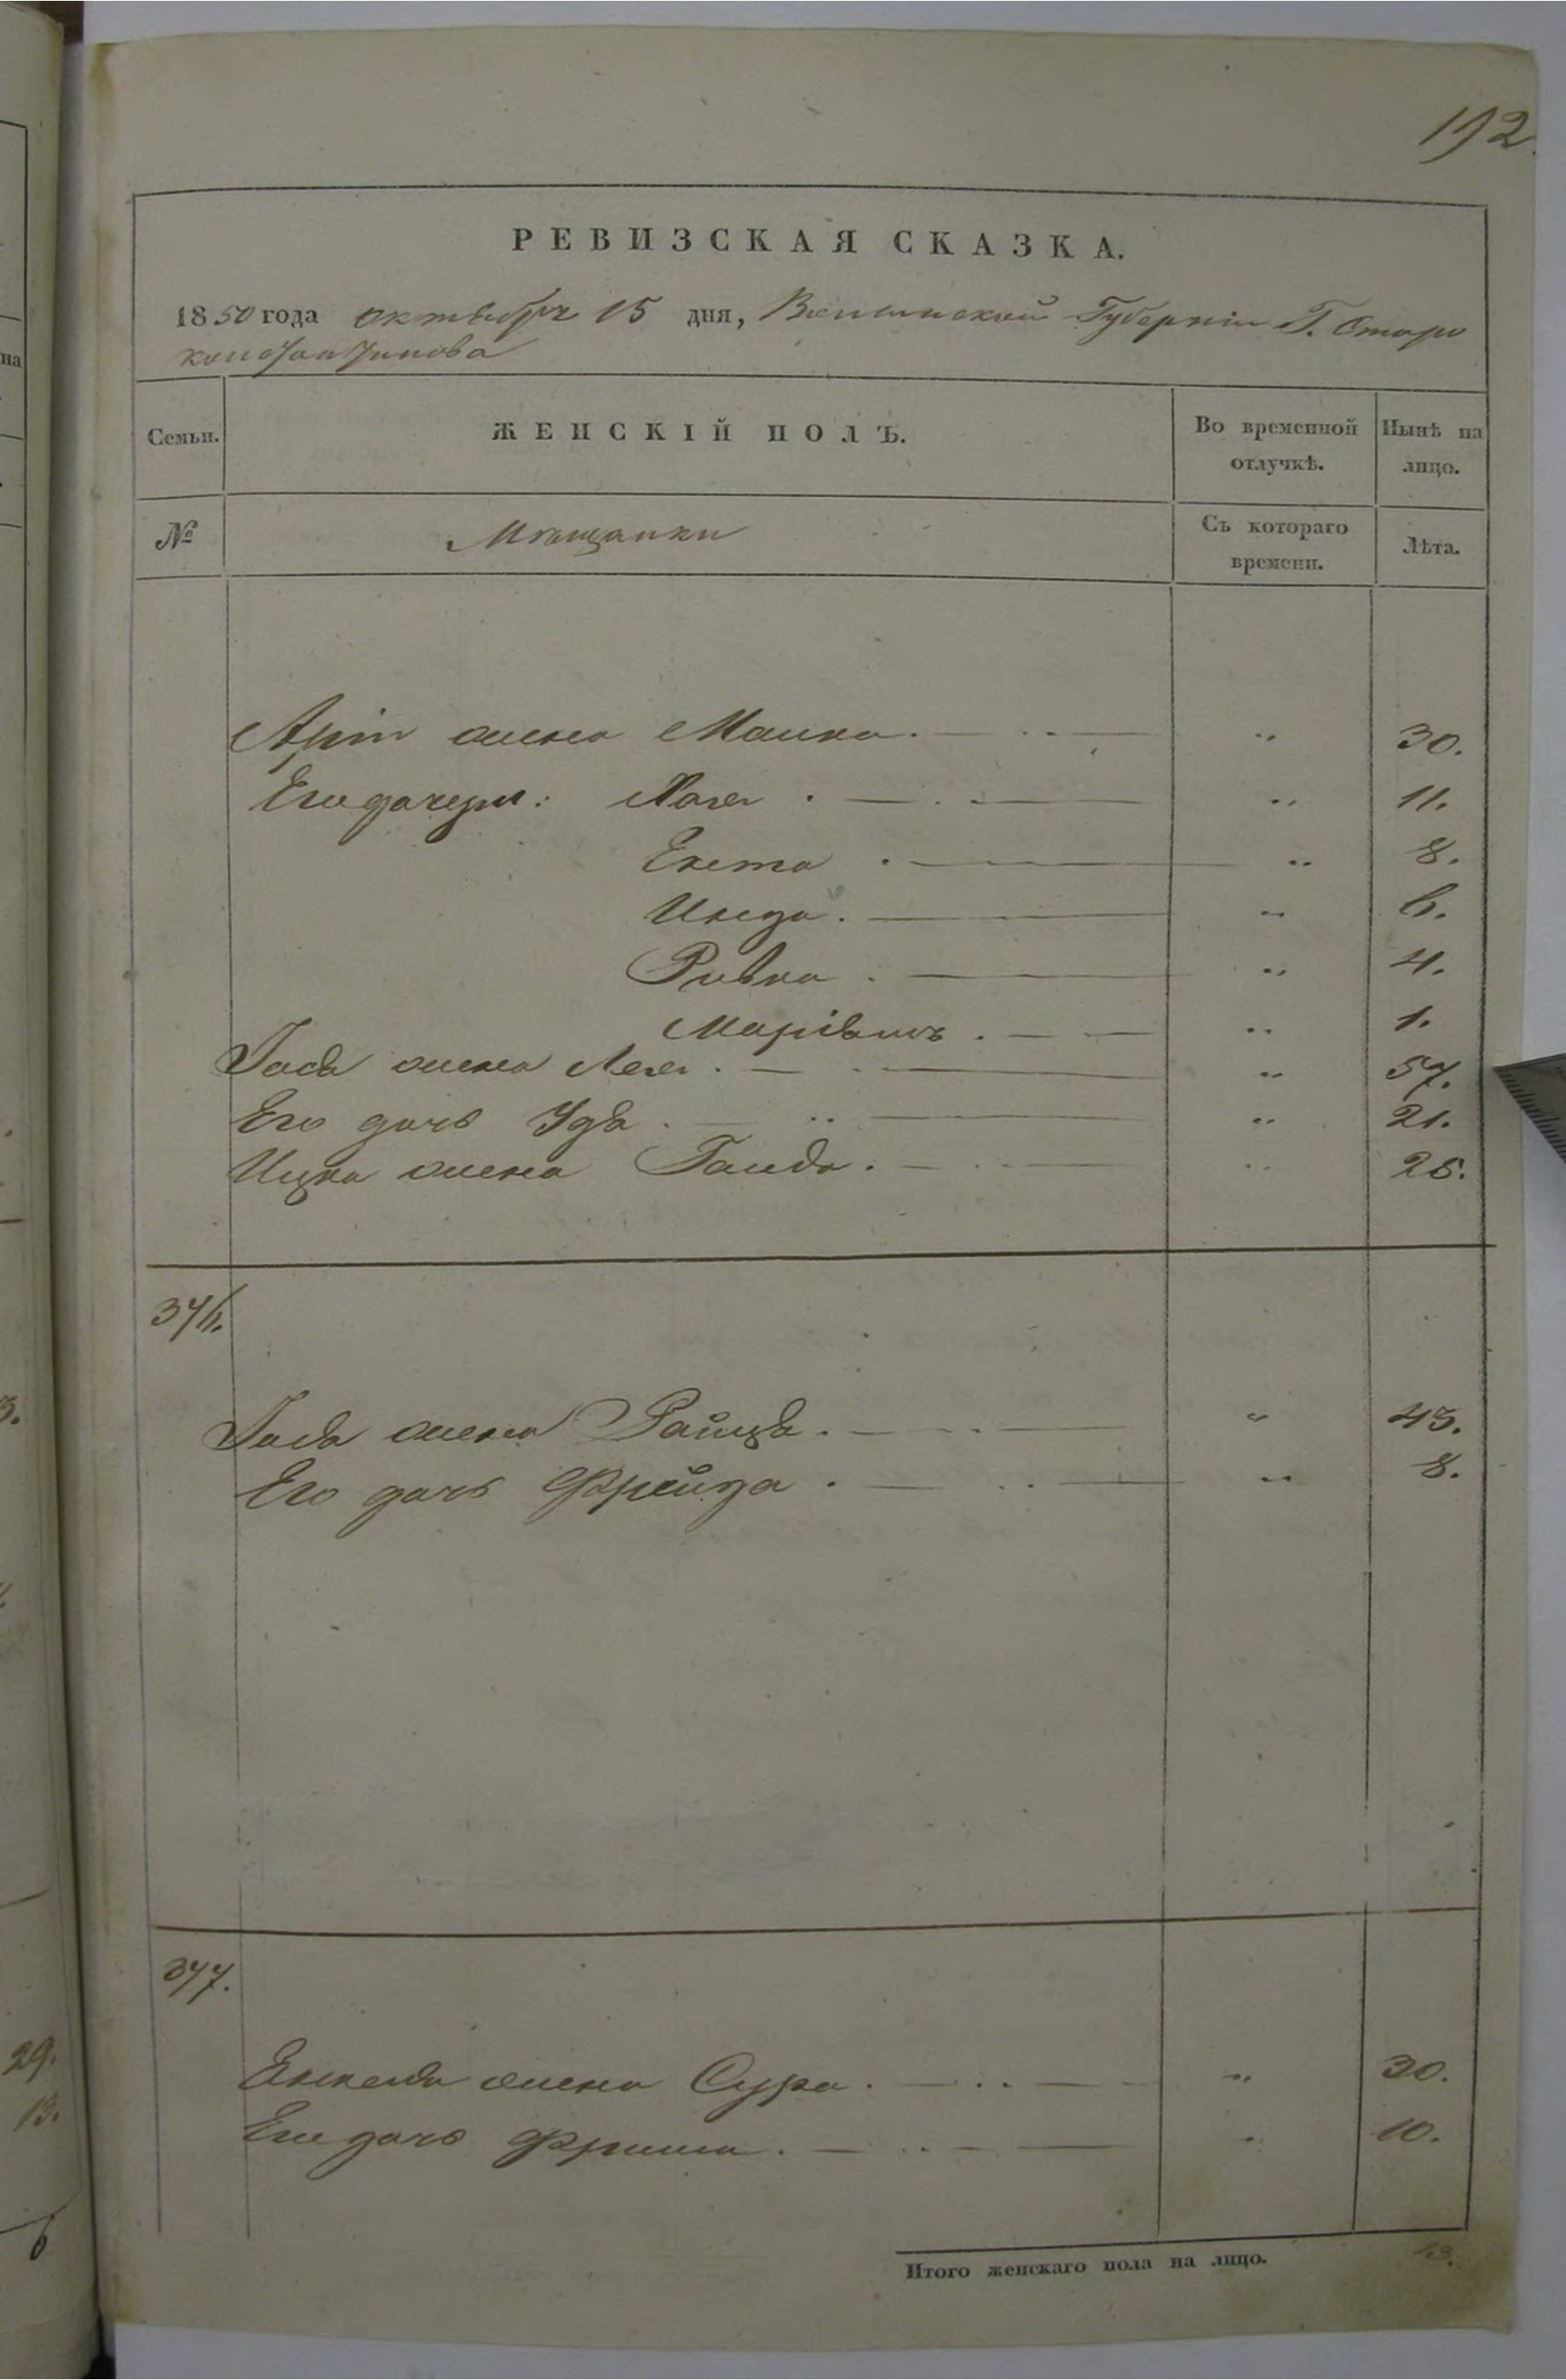 192.
РЕВИЗСКАЯ СКАЗКА.
1850 года октября 15 дня, Волынской Губернии Г. Старо
константинова
Семьи. ЖЕНСКІЙ ПОЛЪ. Во временной отлучкѣ. Нынѣ на лицо.
№ Мѣщанки Съ котораго времени. Лѣта.
жена Малка. „ 30.
Его дочери: Хая . „ 11.
Ента . „ 8.
„ 6.
Ривка . „ 4.
Маріямъ . „ 1.
жена Лея . „ 57.
Его дочь . „ 21.
Ицка жена . „ 25.
346.
жена . „ 43.
Его дочь Фрейда . „ 8.
347.
жена Сура . „ 30.
Его дочь Фрима . „ 10.
Итого женскаго пола на лицо. 13.
на
3.
29.
13.
6